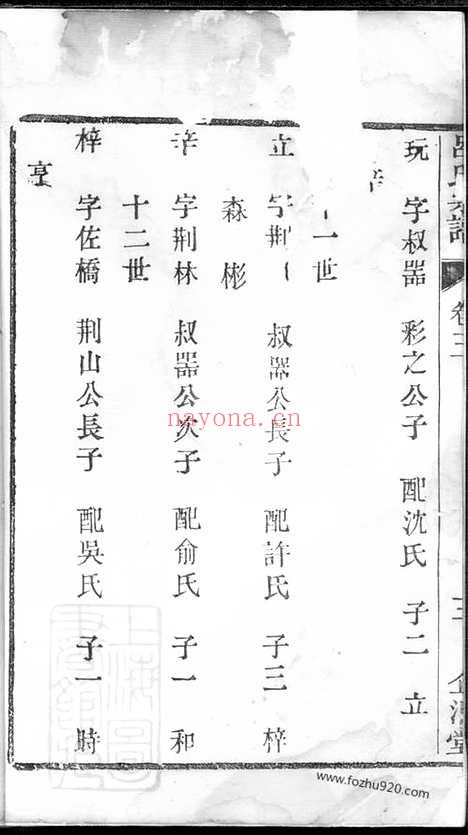 卷三
三
玩 字叔器 彩之公子 配沈氏 子二 立
一世
立 字荆 叔器公長子 配許氏 子三 梓
森 彬
辛 字荆林 叔器公次子 配俞氏 子一 和
十二世
梓 字佐橋 荆山公長子 配吳氏 子一 時
nayona.cn
www.fozhu920.com